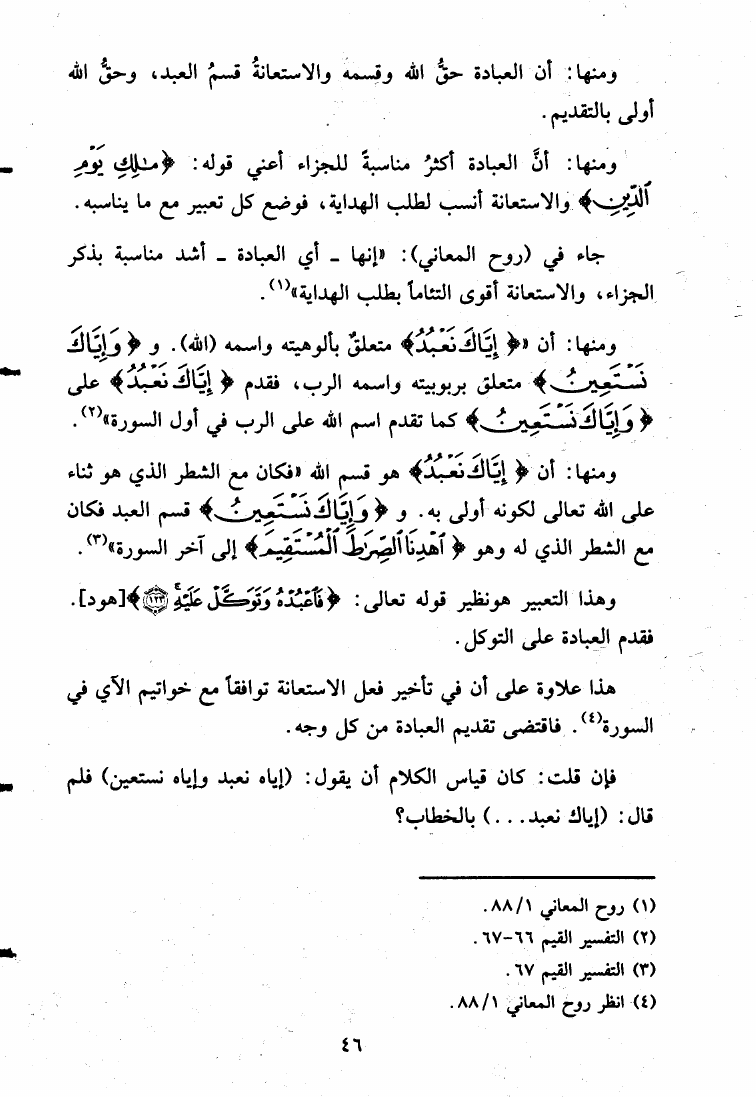 ومنها: أن العبادة حقُّ الله وقسمه والاستعانةُ قسمُ العبد، وحقُّ الله
أولى بالتقديم.
ومنها: أنَّ العبادة أكثرُ مناسبةً للجزاء أعني قوله: ﴿مَـٰلِكِ يَوْمِ
ٱلدِّينِ﴾ والاستعانة أنسب لطلب الهداية، فوضع كل تعبير مع ما يناسبه.
جاء في (روح المعاني): «إنها ـ أي العبادة ـ أشد مناسبة بذكر
الجزاء، والاستعانة أقوى التئاماً بطلب الهداية»(١).
ومنها: أن «﴿إِيَّاكَ نَعْبُدُ﴾ متعلقٌ بألوهيته واسمه (الله). و ﴿وَإِيَّاكَ
نَسْتَعِينُ﴾ متعلق بربوبيته واسمه الرب، فقدم ﴿إِيَّاكَ نَعْبُدُ﴾ على
﴿وَإِيَّاكَ نَسْتَعِينُ﴾ كما تقدم اسم الله على الرب في أول السورة»(٢).
ومنها: أن ﴿إِيَّاكَ نَعْبُدُ﴾ هو قسم الله «فكان مع الشطر الذي هو ثناء
على الله تعالى لكونه أولى به. و ﴿وَإِيَّاكَ نَسْتَعِينُ﴾ قسم العبد فكان
مع الشطر الذي له وهو ﴿ٱهْدِنَا ٱلصِّرَٰطَ ٱلْمُسْتَقِيمَ﴾ إلى آخر السورة»(٣).
وهذا التعبير هونظير قوله تعالى: ﴿فَٱعْبُدْهُ وَتَوَكَّلْ عَلَيْهِ ۚ ١٢٣﴾[هود].
فقدم العبادة على التوكل.
هذا علاوة على أن في تأخير فعل الاستعانة توافقاً مع خواتيم الآي في
السورة(٤). فاقتضى تقديم العبادة من كل وجه.
فإن قلت: كان قياس الكلام أن يقول: (إياه نعبد وإياه نستعين) فلم
قال: (إياك نعبد...) بالخطاب؟
(١) روح المعاني ٨٨/١.
(٢) التفسير القيم ٦٦-٦٧.
(٣) التفسير القيم ٦٧.
(٤) انظر روح المعاني ٨٨/١.
٤٦